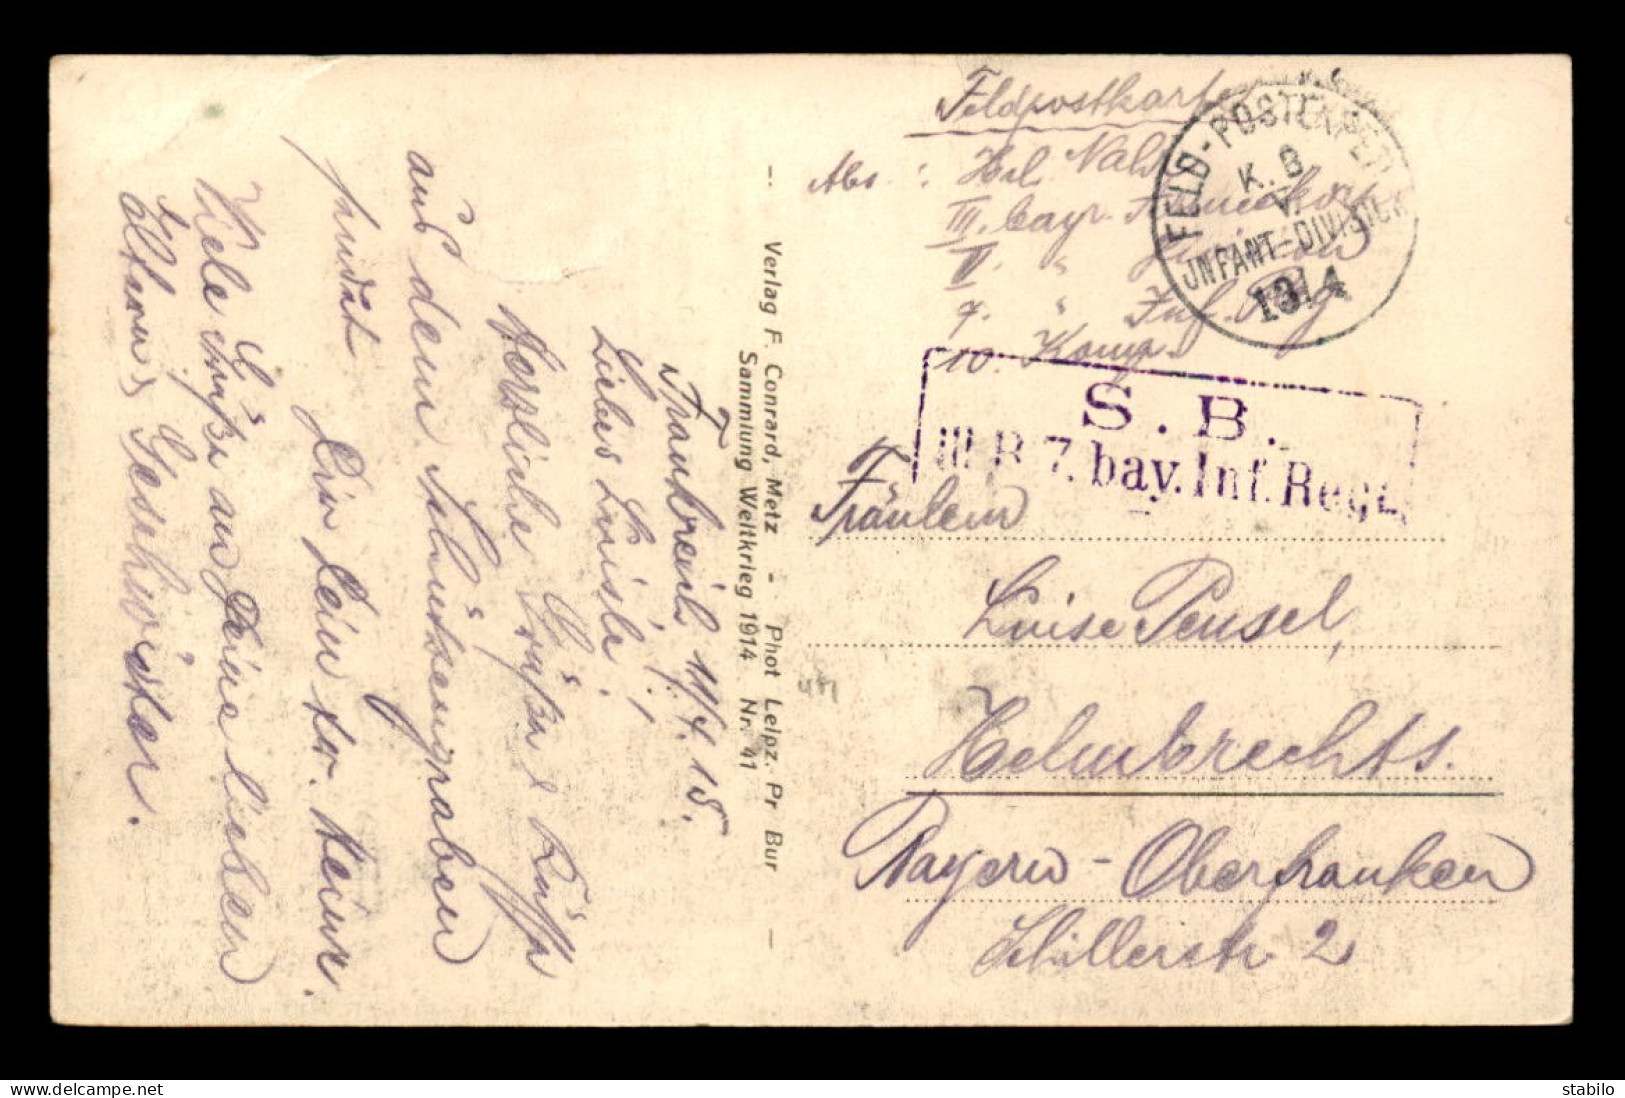 Feldpostkarte
Abs.: Hrl. Nahr
III. bayr. Armeekorps
V. " Division
7. " Inf. Reg
10. Komp.
FELD-POSTEXPED.
K. B.
V.
INFANT-DIVISION
1914
S. B.
III. B. 7. bay. Inf. Regt.
Fräulein
Luise Pensel,
Helmbrechts.
Bayern - Oberfranken
Schillerstr 2
Verlag F. Conrard, Metz - Phot Leipz. Pr Bur
Sammlung Weltkrieg 1914 Nr. 41
Frankreich 11/4. 15.
Liebes Luisle!
Herzliche Grüße & Küsse
aus dem Schützengraben
sendet
Dir Dein tr. Heinr.
Viele Grüße an Deine lieben
Eltern & Geschwister.